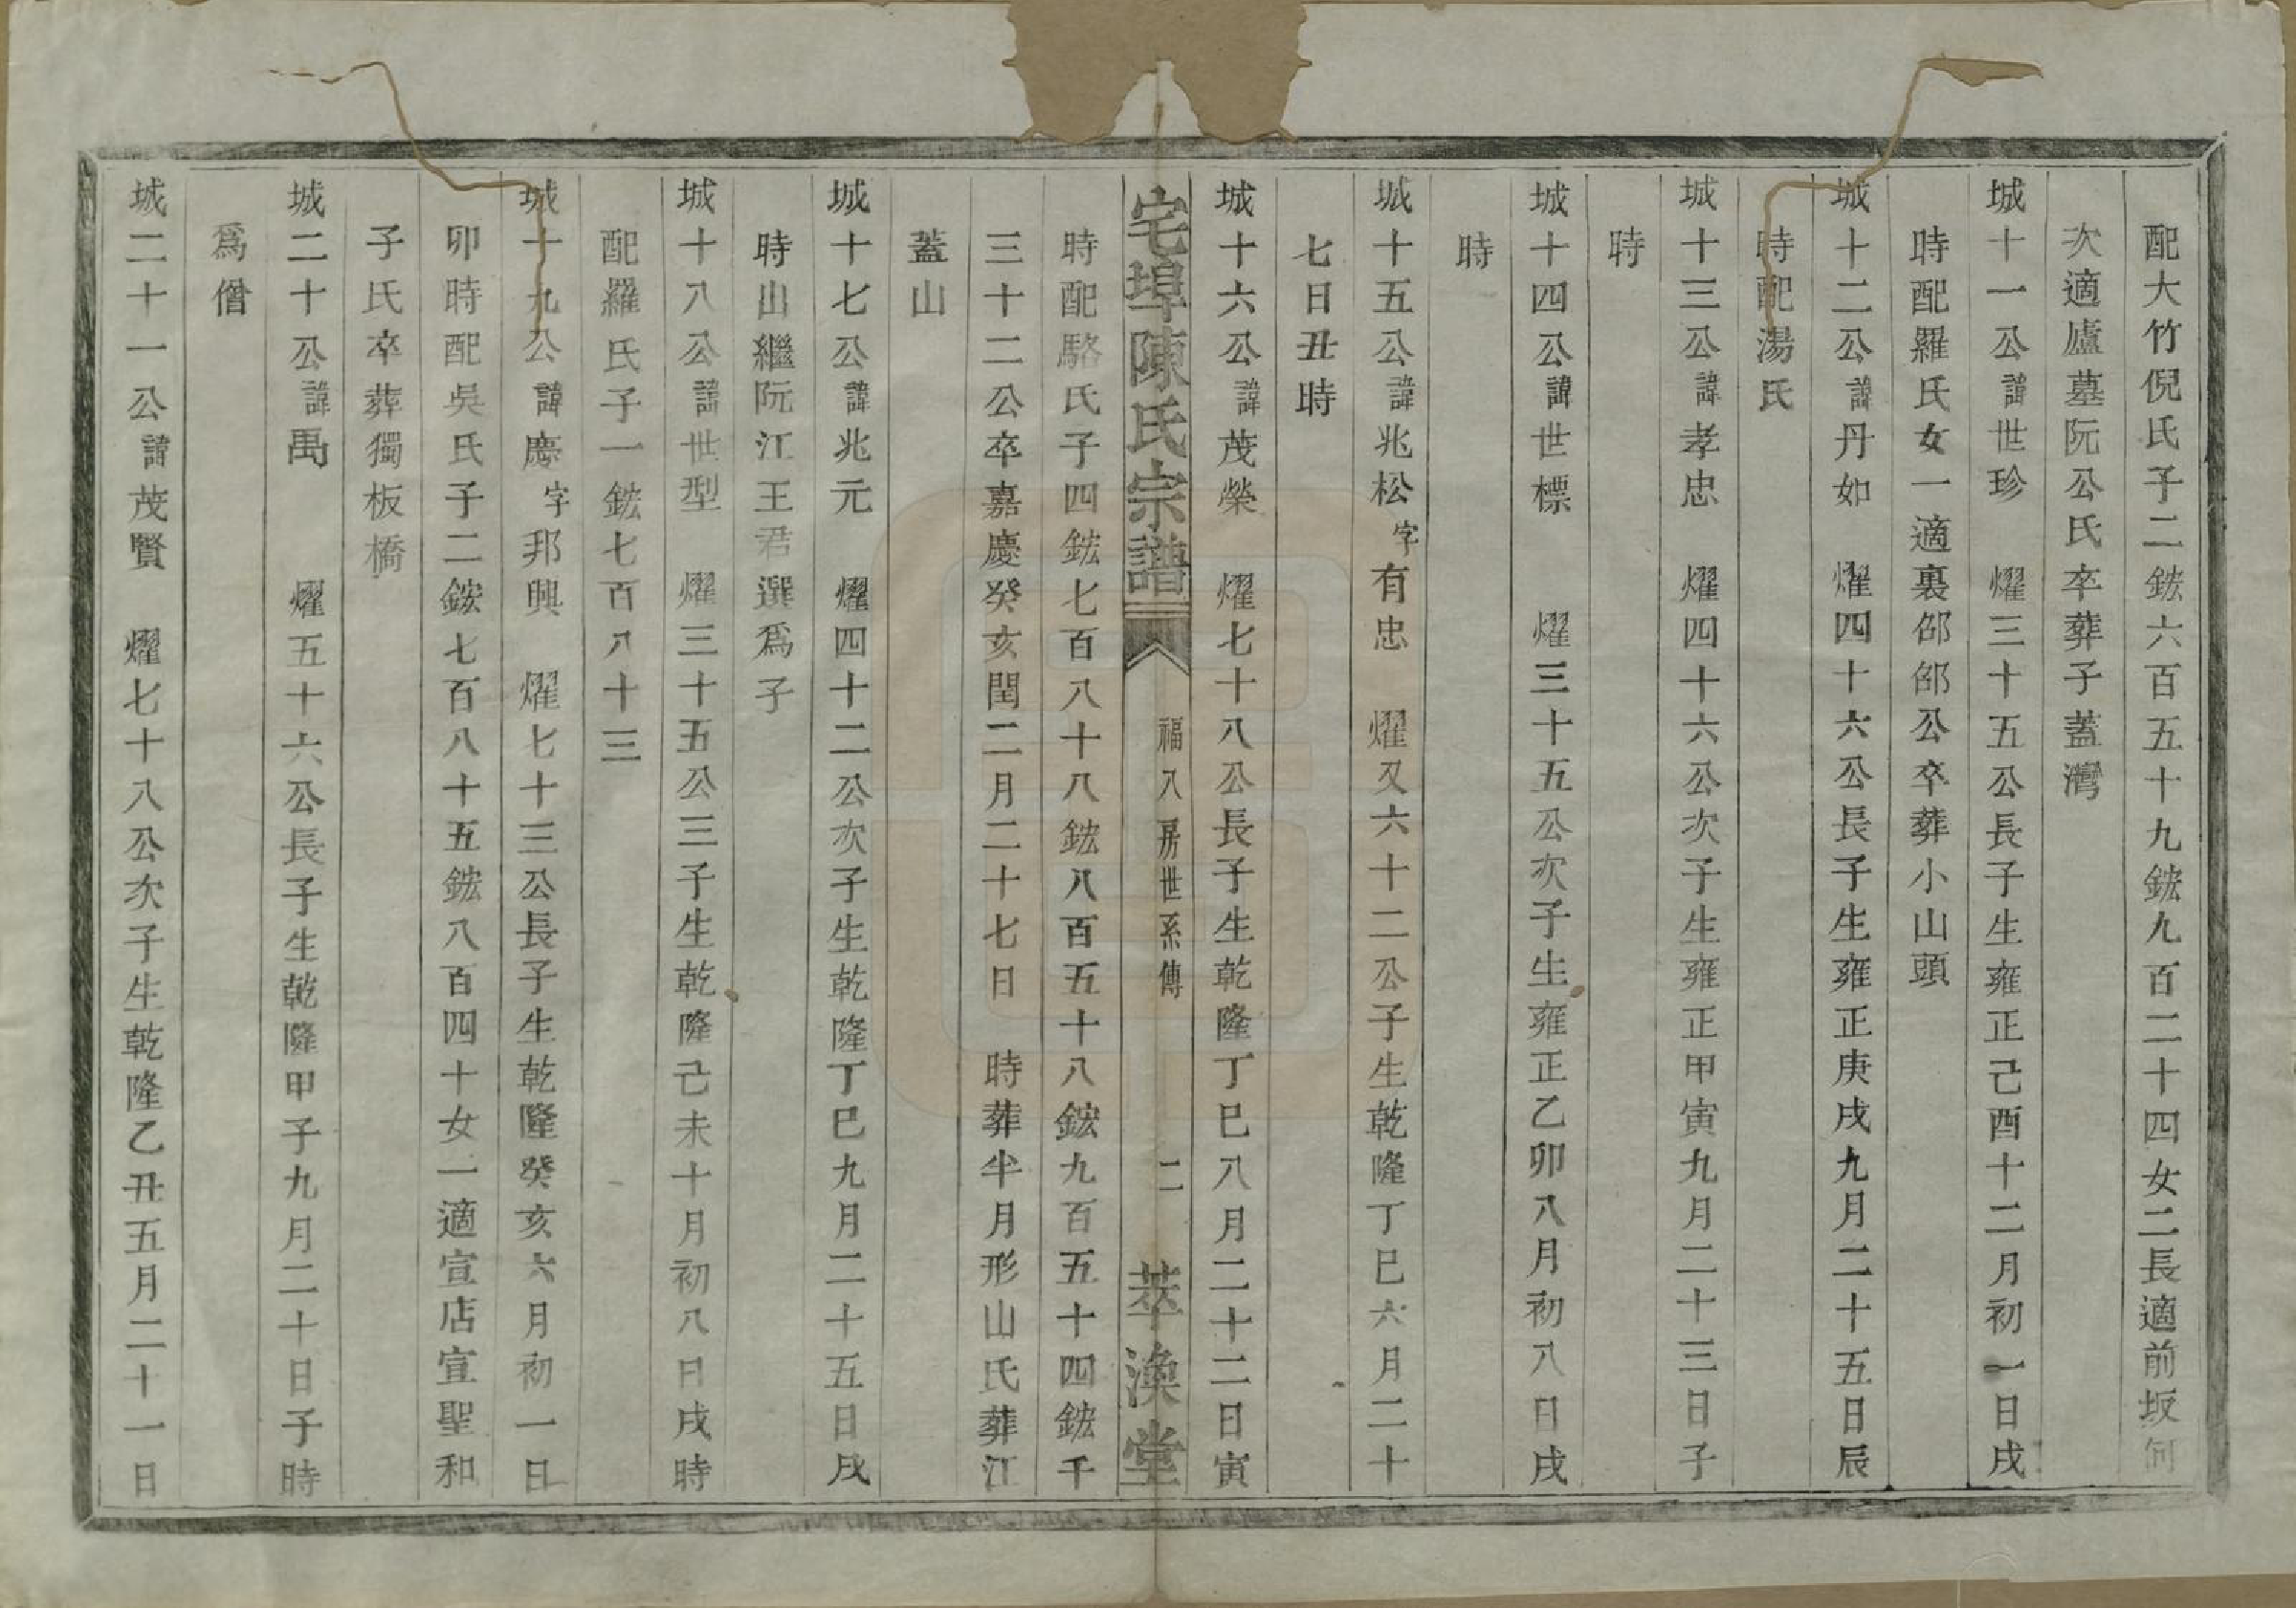 配大竹倪氏子二鋐六百五十九鋐九百二十四女二長適前坂何
次適廬墓阮公氏卒葬子蓋灣
城十一公諱世珍　燿三十五公長子生雍正己酉十二月初一日戌
時配羅氏女一適裏邵邵公卒葬小山頭
城十二公諱丹如　燿四十六公長子生雍正庚戌九月二十五日辰
時配湯氏
城十三公諱孝忠　燿四十六公次子生雍正甲寅九月二十三日子
時
城十四公諱世標　燿三十五公次子生雍正乙卯八月初八日戌
時
城十五公諱兆松字有忠　燿又六十二公子生乾隆丁巳六月二十
七日丑時
城十六公諱茂榮　燿七十八公長子生乾隆丁巳八月二十二日寅
宅埠陳氏宗譜　福八房世系傳　二　萃渙堂
時配駱氏子四鋐七百八十八鋐八百五十八鋐九百五十四鋐千
三十二公卒嘉慶癸亥閏二月二十七日　時葬半月形山氏葬江
蓋山
城十七公諱兆元　燿四十二公次子生乾隆丁巳九月二十五日戌
時出繼阮江王君選爲子
城十八公諱世型　燿三十五公三子生乾隆己未十月初八日戌時
配羅氏子一鋐七百八十三
城十九公諱慶字邦興　燿七十三公長子生乾隆癸亥六月初一日
卯時配吳氏子二鋐七百八十五鋐八百四十女一適宣店宣聖和
子氏卒葬獨板橋
城二十公諱禹　燿五十六公長子生乾隆甲子九月二十日子時
爲僧
城二十一公諱茂賢　燿七十八公次子生乾隆乙丑五月二十一日